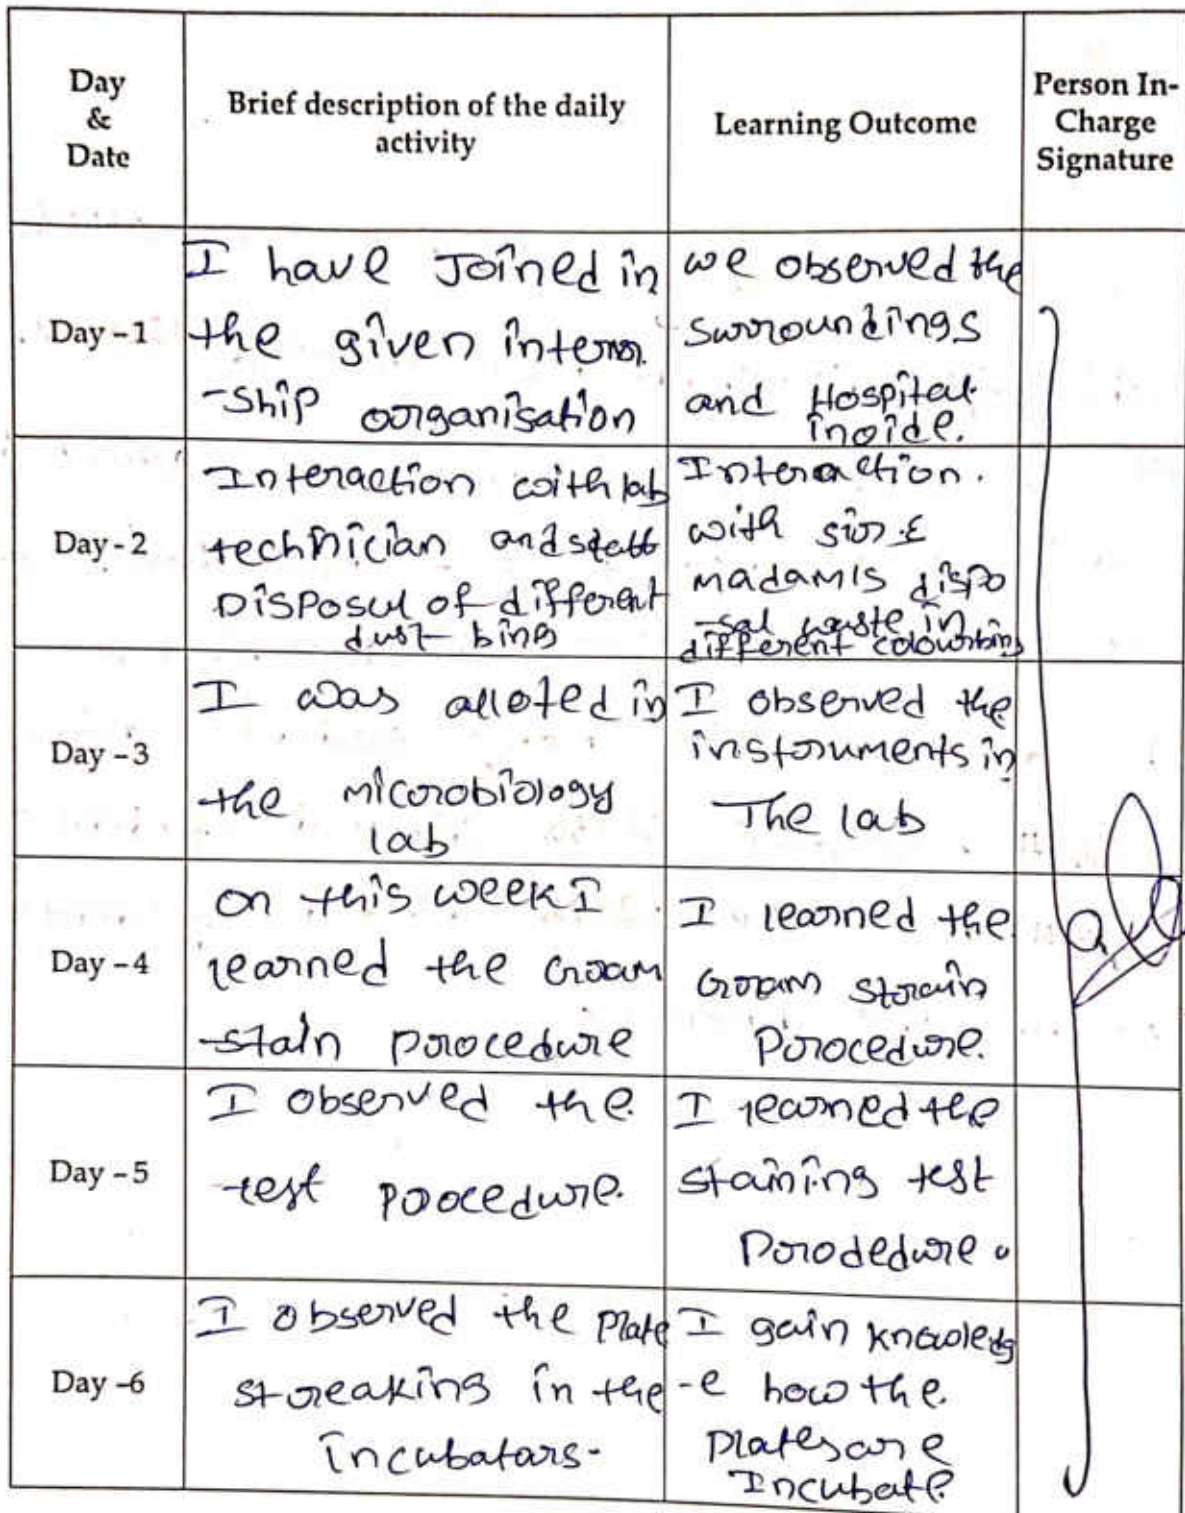 Day
&
Date
Brief description of the daily
activity
Learning Outcome
Person In-
Charge
Signature
Day - 1
I have Joined in
the given intern
-ship organisation
we observed the
surroundings
and Hospital
inside.
Day - 2
Interaction with lab
technician and staff
Disposul of different
dust bins
Interaction.
with sir &
madamis dispo
-sal waste in
different colourbins
Day - 3
I was alloted in
the microbiology
lab
I observed the
instruments in
The lab
Day - 4
on this week I
learned the Gram
-stain procedure
I learned the
Gram strain
Procedure.
Day - 5
I observed the
test procedure.
I learned the
staining test
Prodedure.
Day -6
I observed the Plate
streaking in the
incubatars-
I gain knowledg
-e how the
Plates are
Incubate.